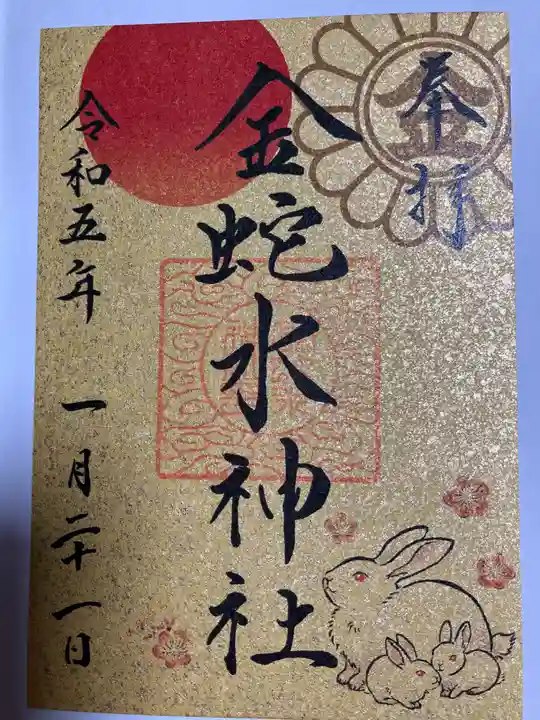 奉拝
金
金蛇水神社
令和五年 一月二十一日